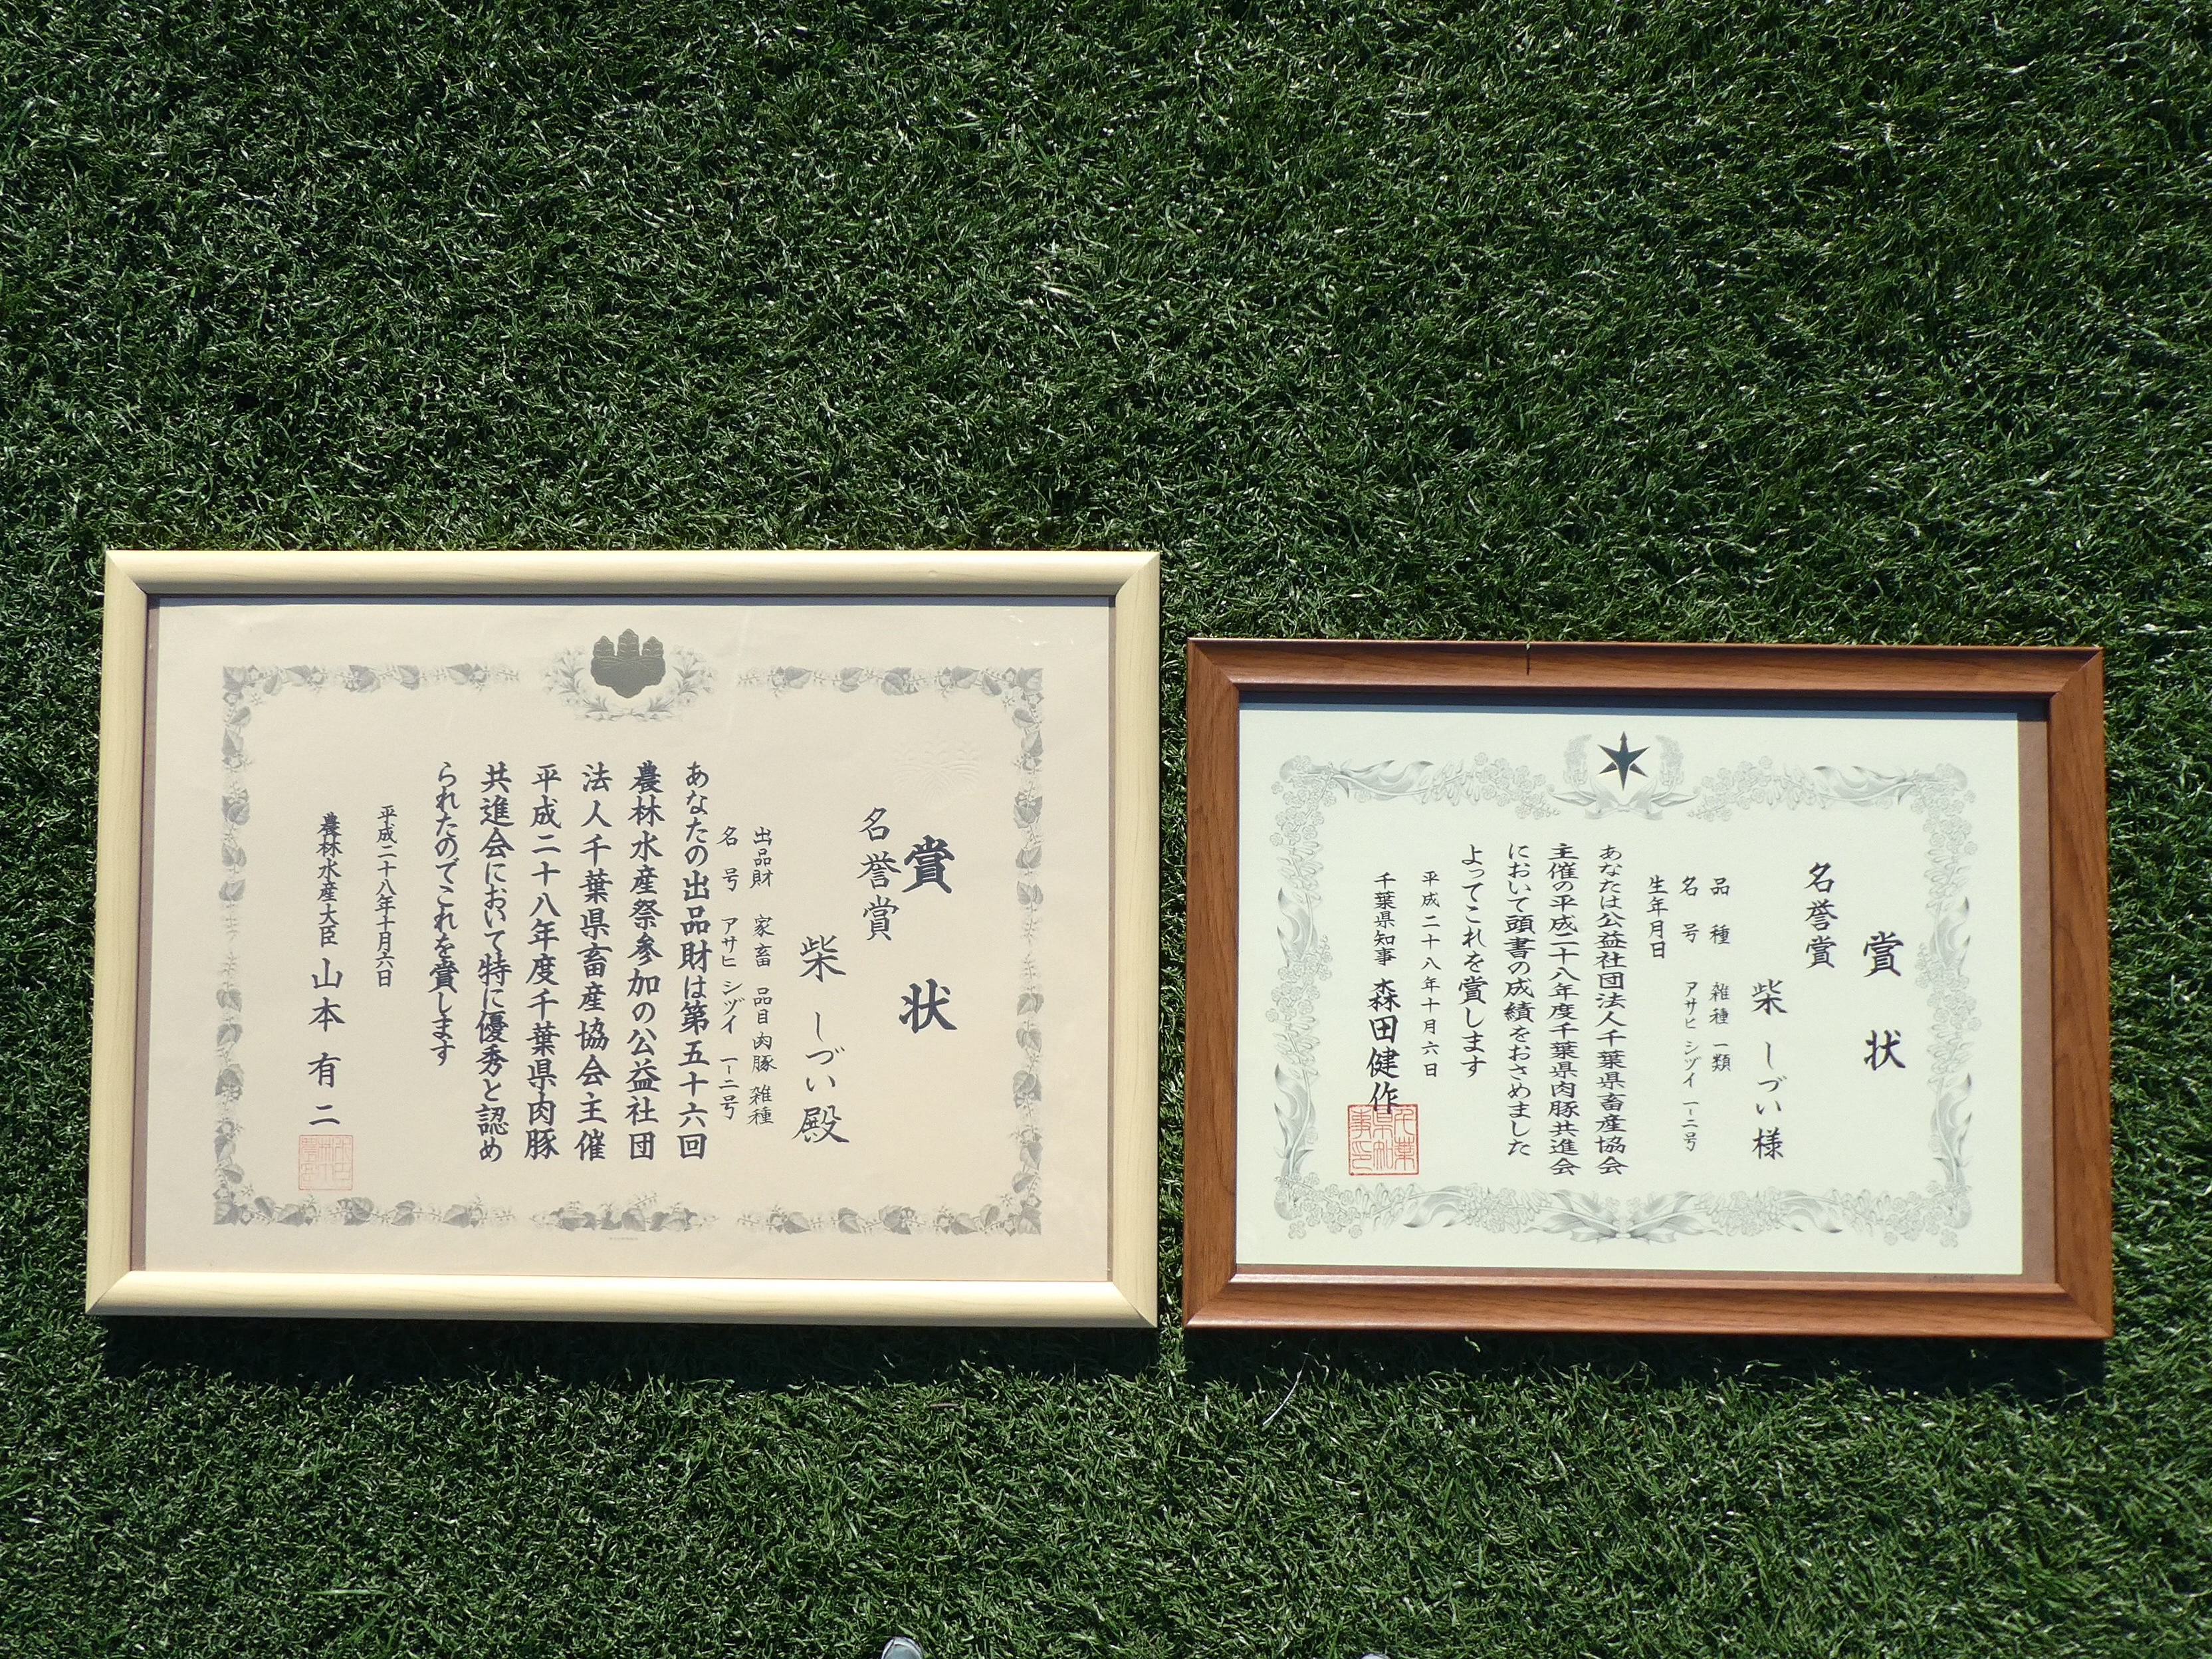 賞状
名誉賞
柴 しづい 殿
出品財 家畜 品目 肉豚 雑種
名号 アサヒ シヅイ 一ー二号
あなたの出品財は第五十六回
農林水産祭参加の公益社団
法人千葉県畜産協会主催
平成二十八年度千葉県肉豚
共進会において特に優秀と認め
られたのでこれを賞します
平成二十八年十月六日
農林水産大臣 山本有二
賞状
名誉賞
柴 しづい 様
品種 雑種一類
名号 アサヒ シヅイ 一ー二号
生年月日
あなたは公益社団法人千葉県畜産協会
主催の平成二十八年度千葉県肉豚共進会
において頭書の成績をおさめました
よってこれを賞します
平成二十八年十月六日
千葉県知事 森田健作